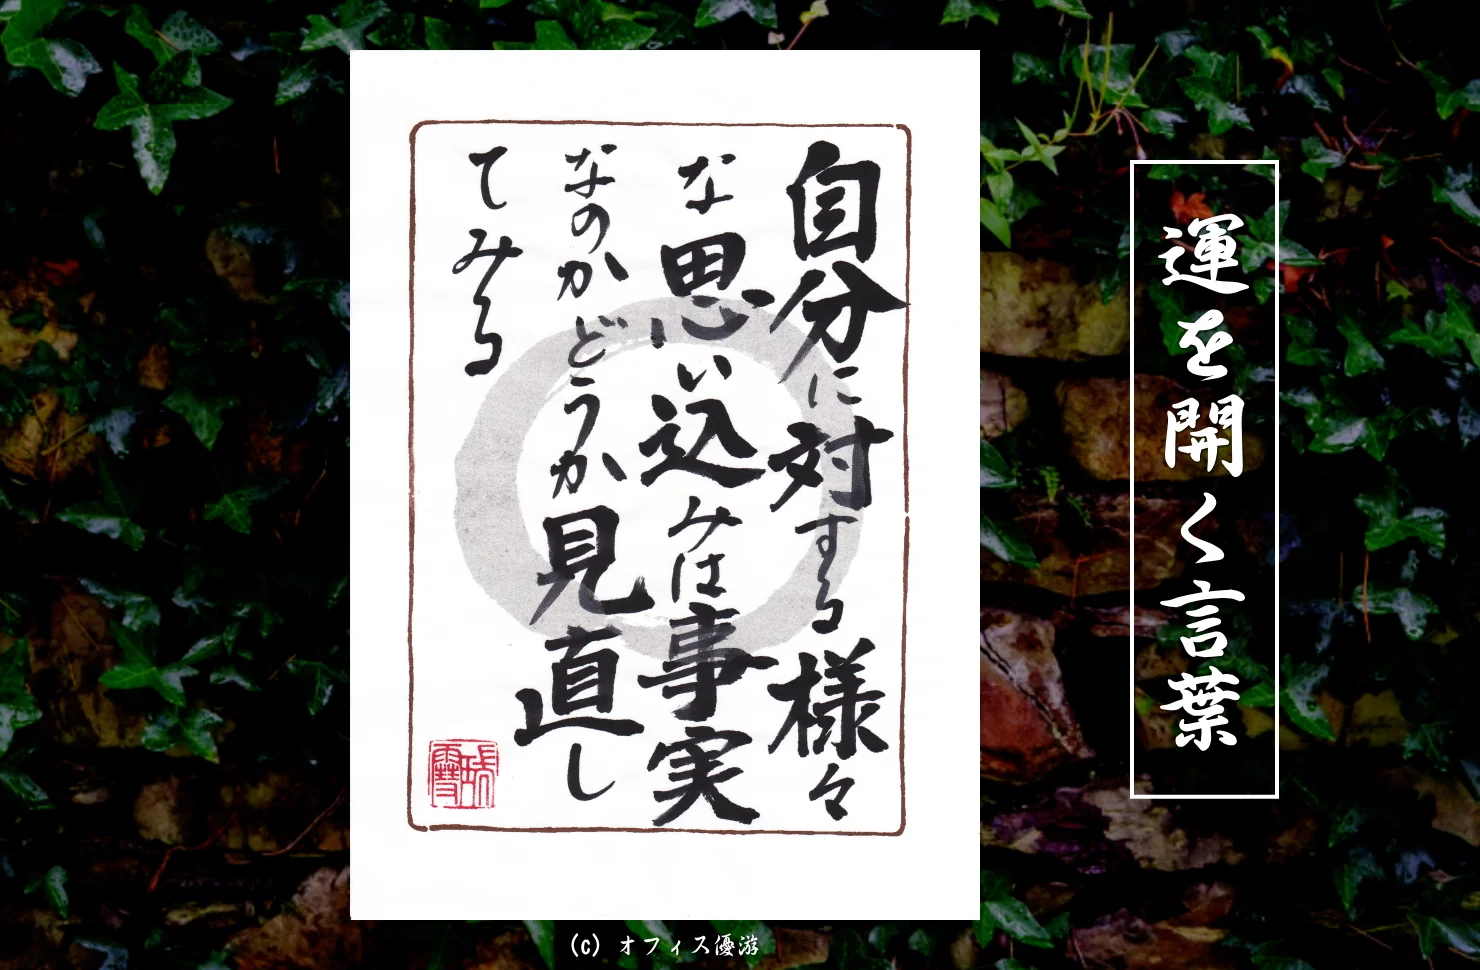 運を開く言葉
自分に対する様々
な思い込みは事実
なのかどうか見直し
てみる
(c) オフィス優游